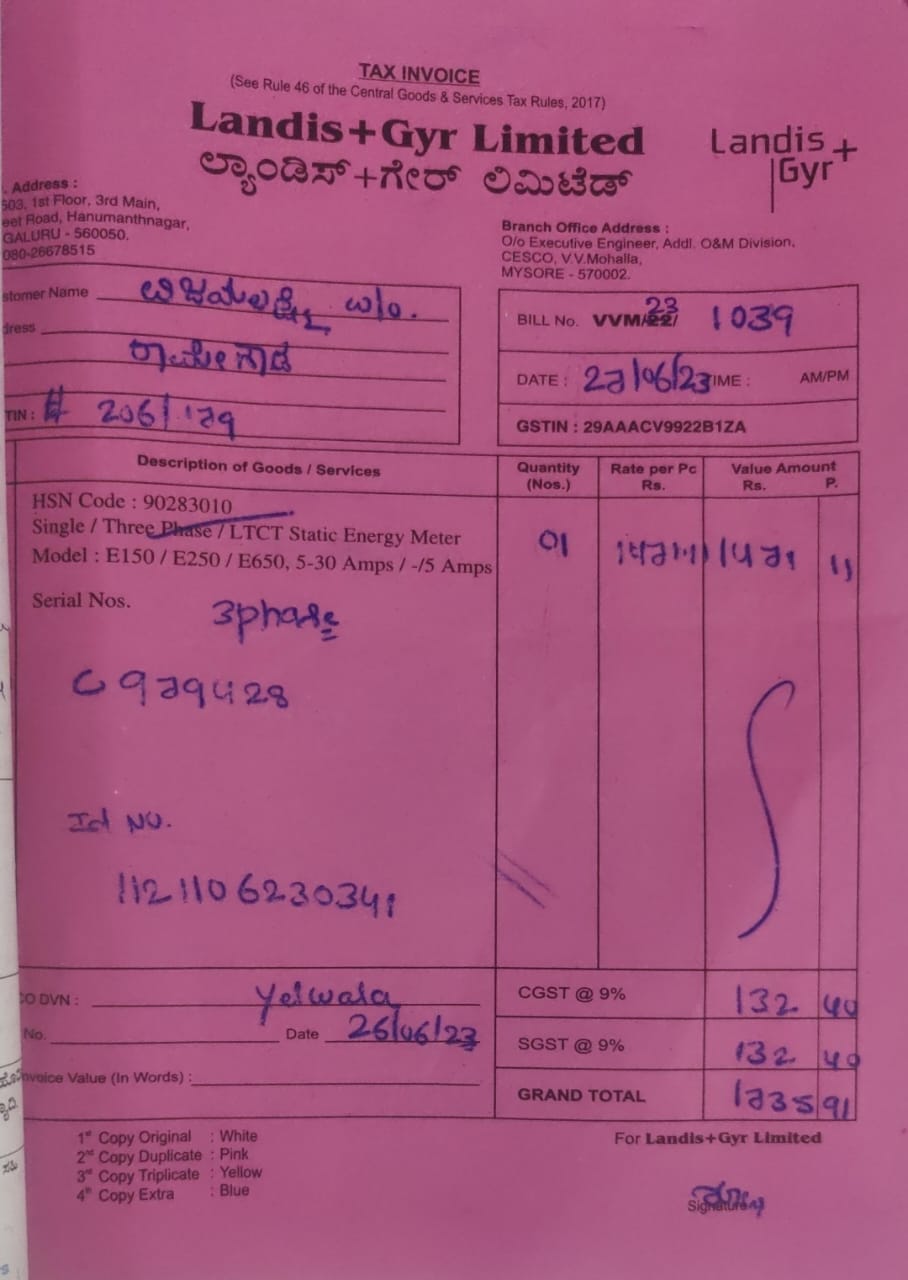 TAX INVOICE
(See Rule 46 of the Central Goods & Services Tax Rules, 2017)
Landis+Gyr Limited
Landis+
Gyr
ಲ್ಯಾಂಡಿಸ್+ಗೇರ್ ಲಿಮಿಟೆಡ್
. Address :
503, 1st Floor, 3rd Main,
eet Road, Hanumanthnagar,
GALURU - 560050.
080-26678515
Branch Office Address :
O/o Executive Engineer, Addl. O&M Division,
CESCO, V.V.Mohalla,
MYSORE - 570002.
stomer Name ವಿಜಯಲಕ್ಷ್ಮಿ W/o.
dress
ರಾಮೇಗೌಡ
TIN : # 206/179
BILL No. VVM/22/ 23 1039
DATE : 27/06/23 IME : AM/PM
GSTIN : 29AAACV9922B1ZA
Description of Goods / Services
Quantity (Nos.)
Rate per Pc Rs.
Value Amount Rs. P.
HSN Code : 90283010
Single / Three Phase / LTCT Static Energy Meter
Model : E150 / E250 / E650, 5-30 Amps / -/5 Amps
01 1471 11
Serial Nos.
3phase
C979428
Id No.
1121106230341
CO DVN : Yelwala
No. Date 26/06/23
nvoice Value (In Words) :
CGST @ 9% 132 40
SGST @ 9% 132 40
GRAND TOTAL 1735 91
1st Copy Original : White
2nd Copy Duplicate : Pink
3rd Copy Triplicate : Yellow
4th Copy Extra : Blue
For Landis+Gyr Limited
Signature